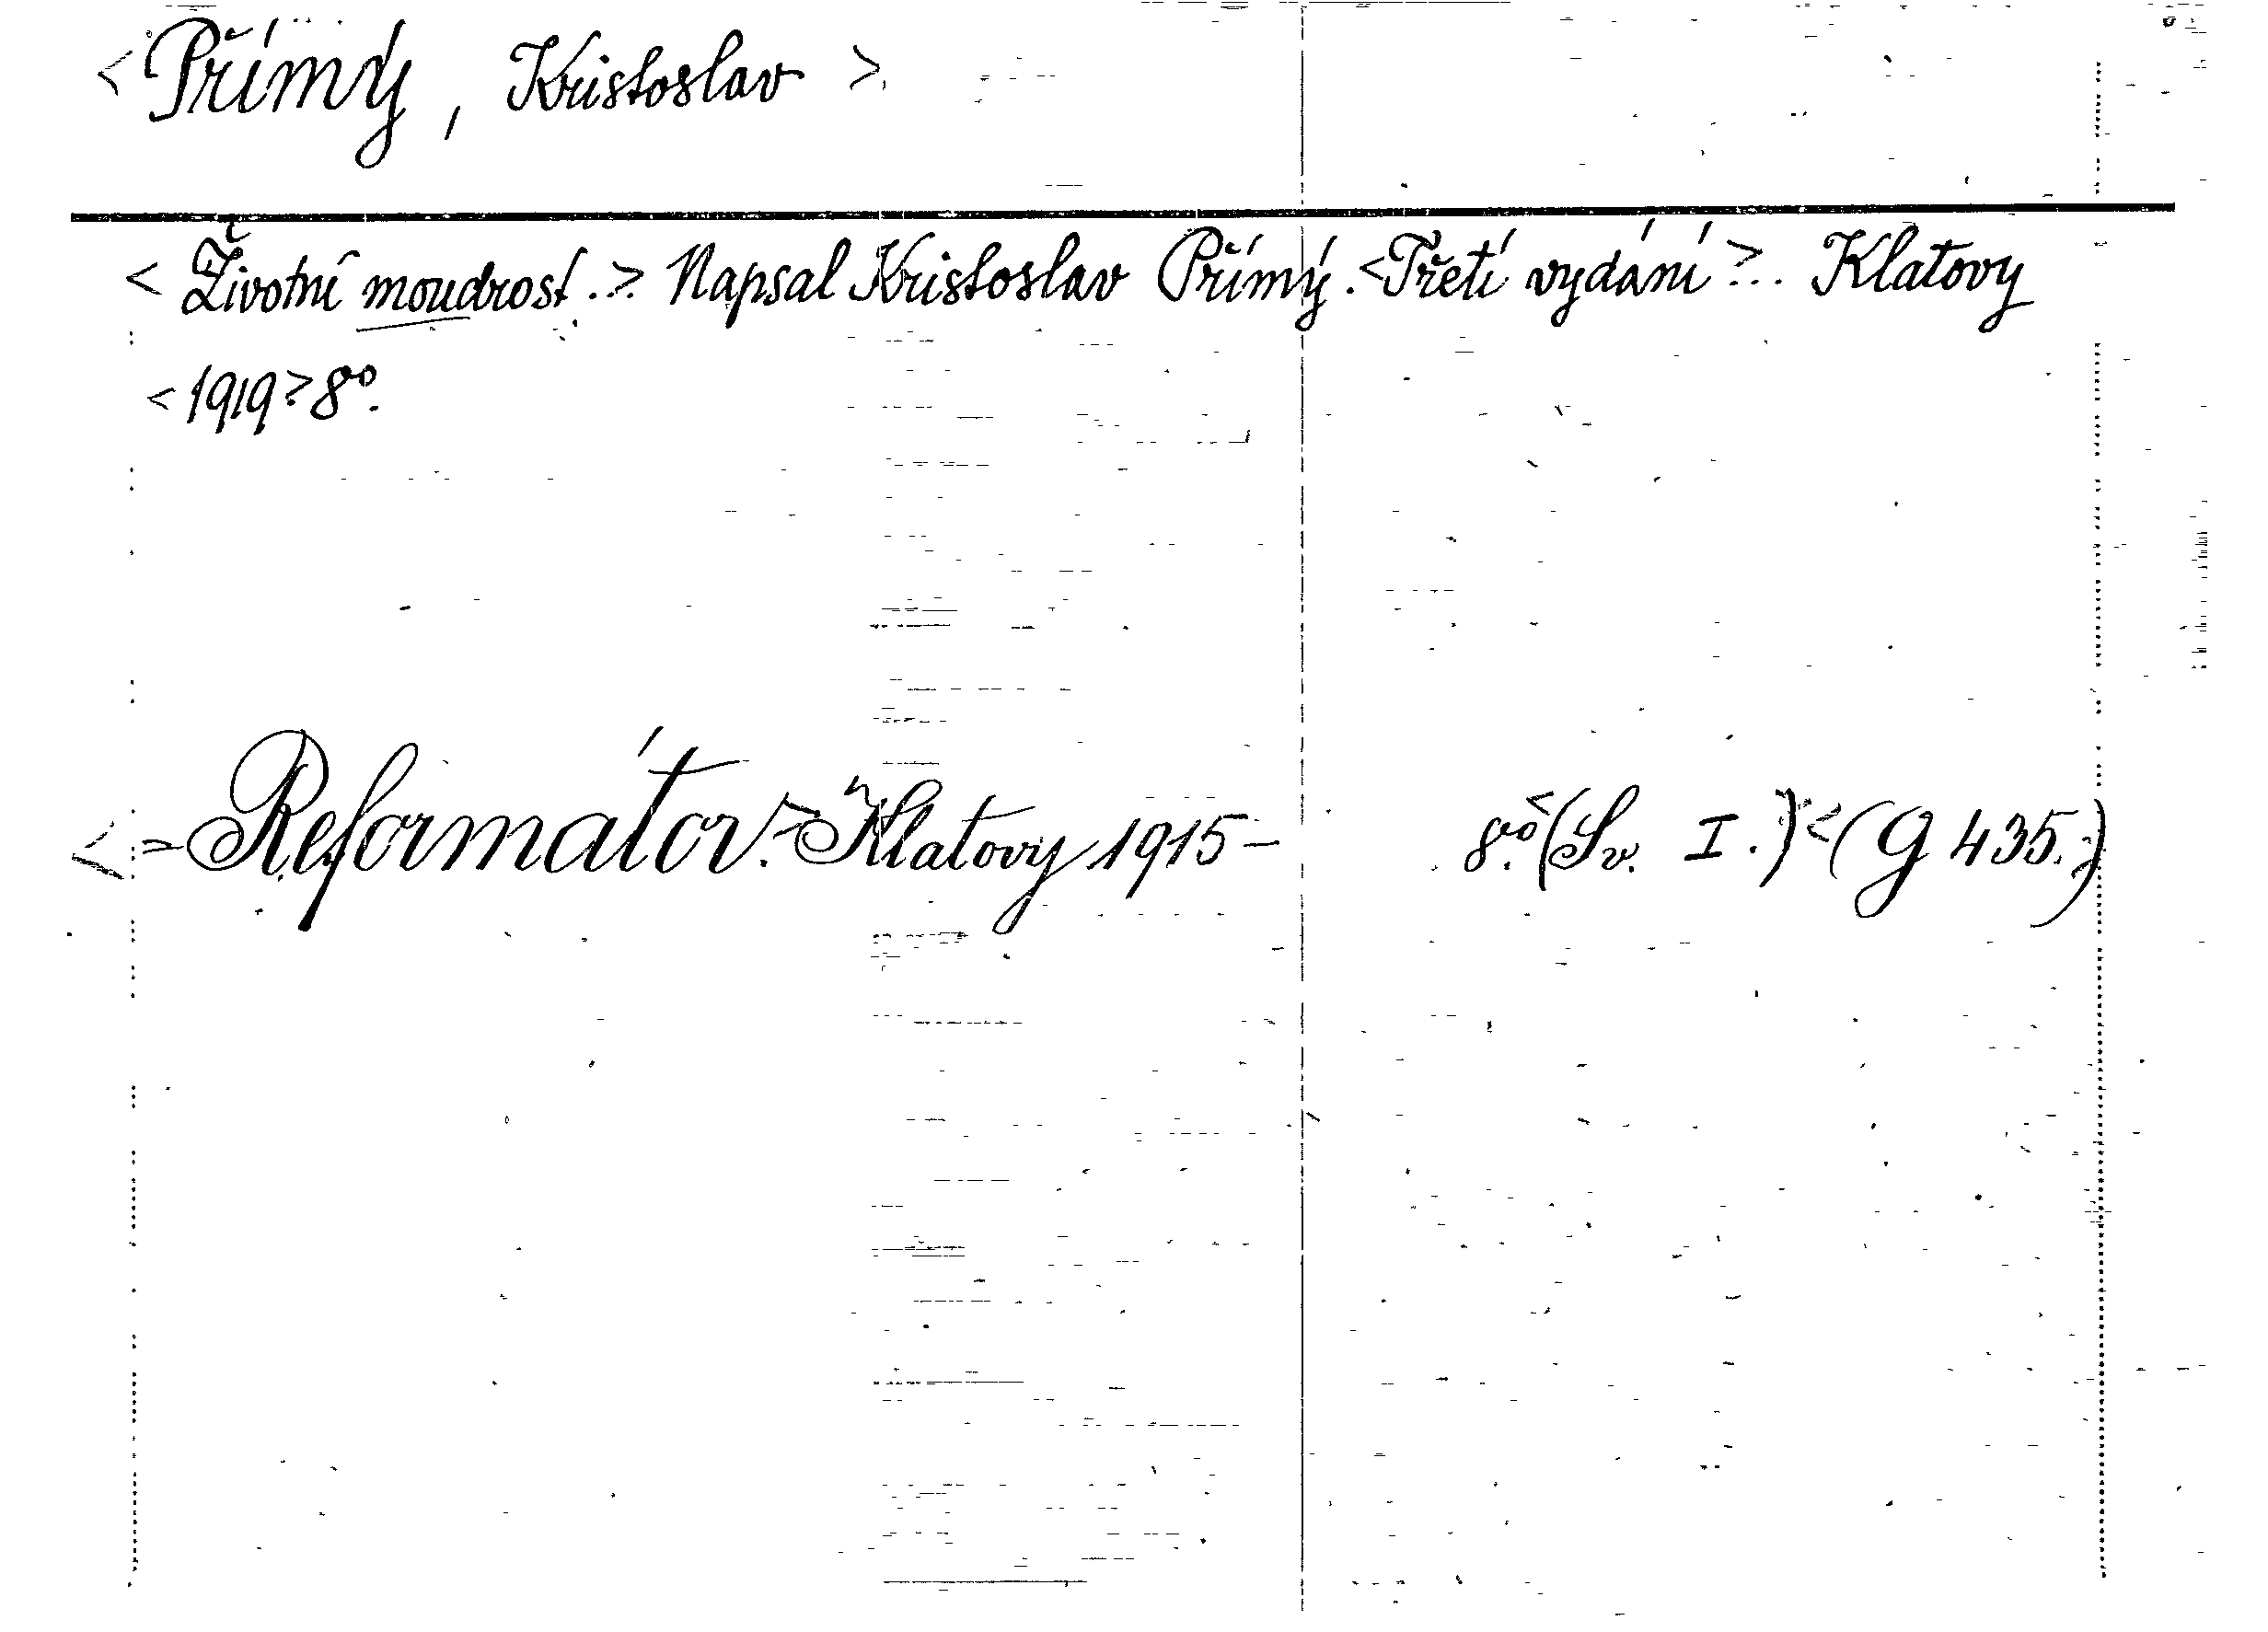 <Přímý, Kristoslav>
<Životní moudrost.> Napsal Kristoslav Přímý. <Třetí vydání>... Klatovy
<1919> 8º.
<-Reformátor.> Klatovy 1915- 8º. <(Sv. I.)> <(G 435.)>